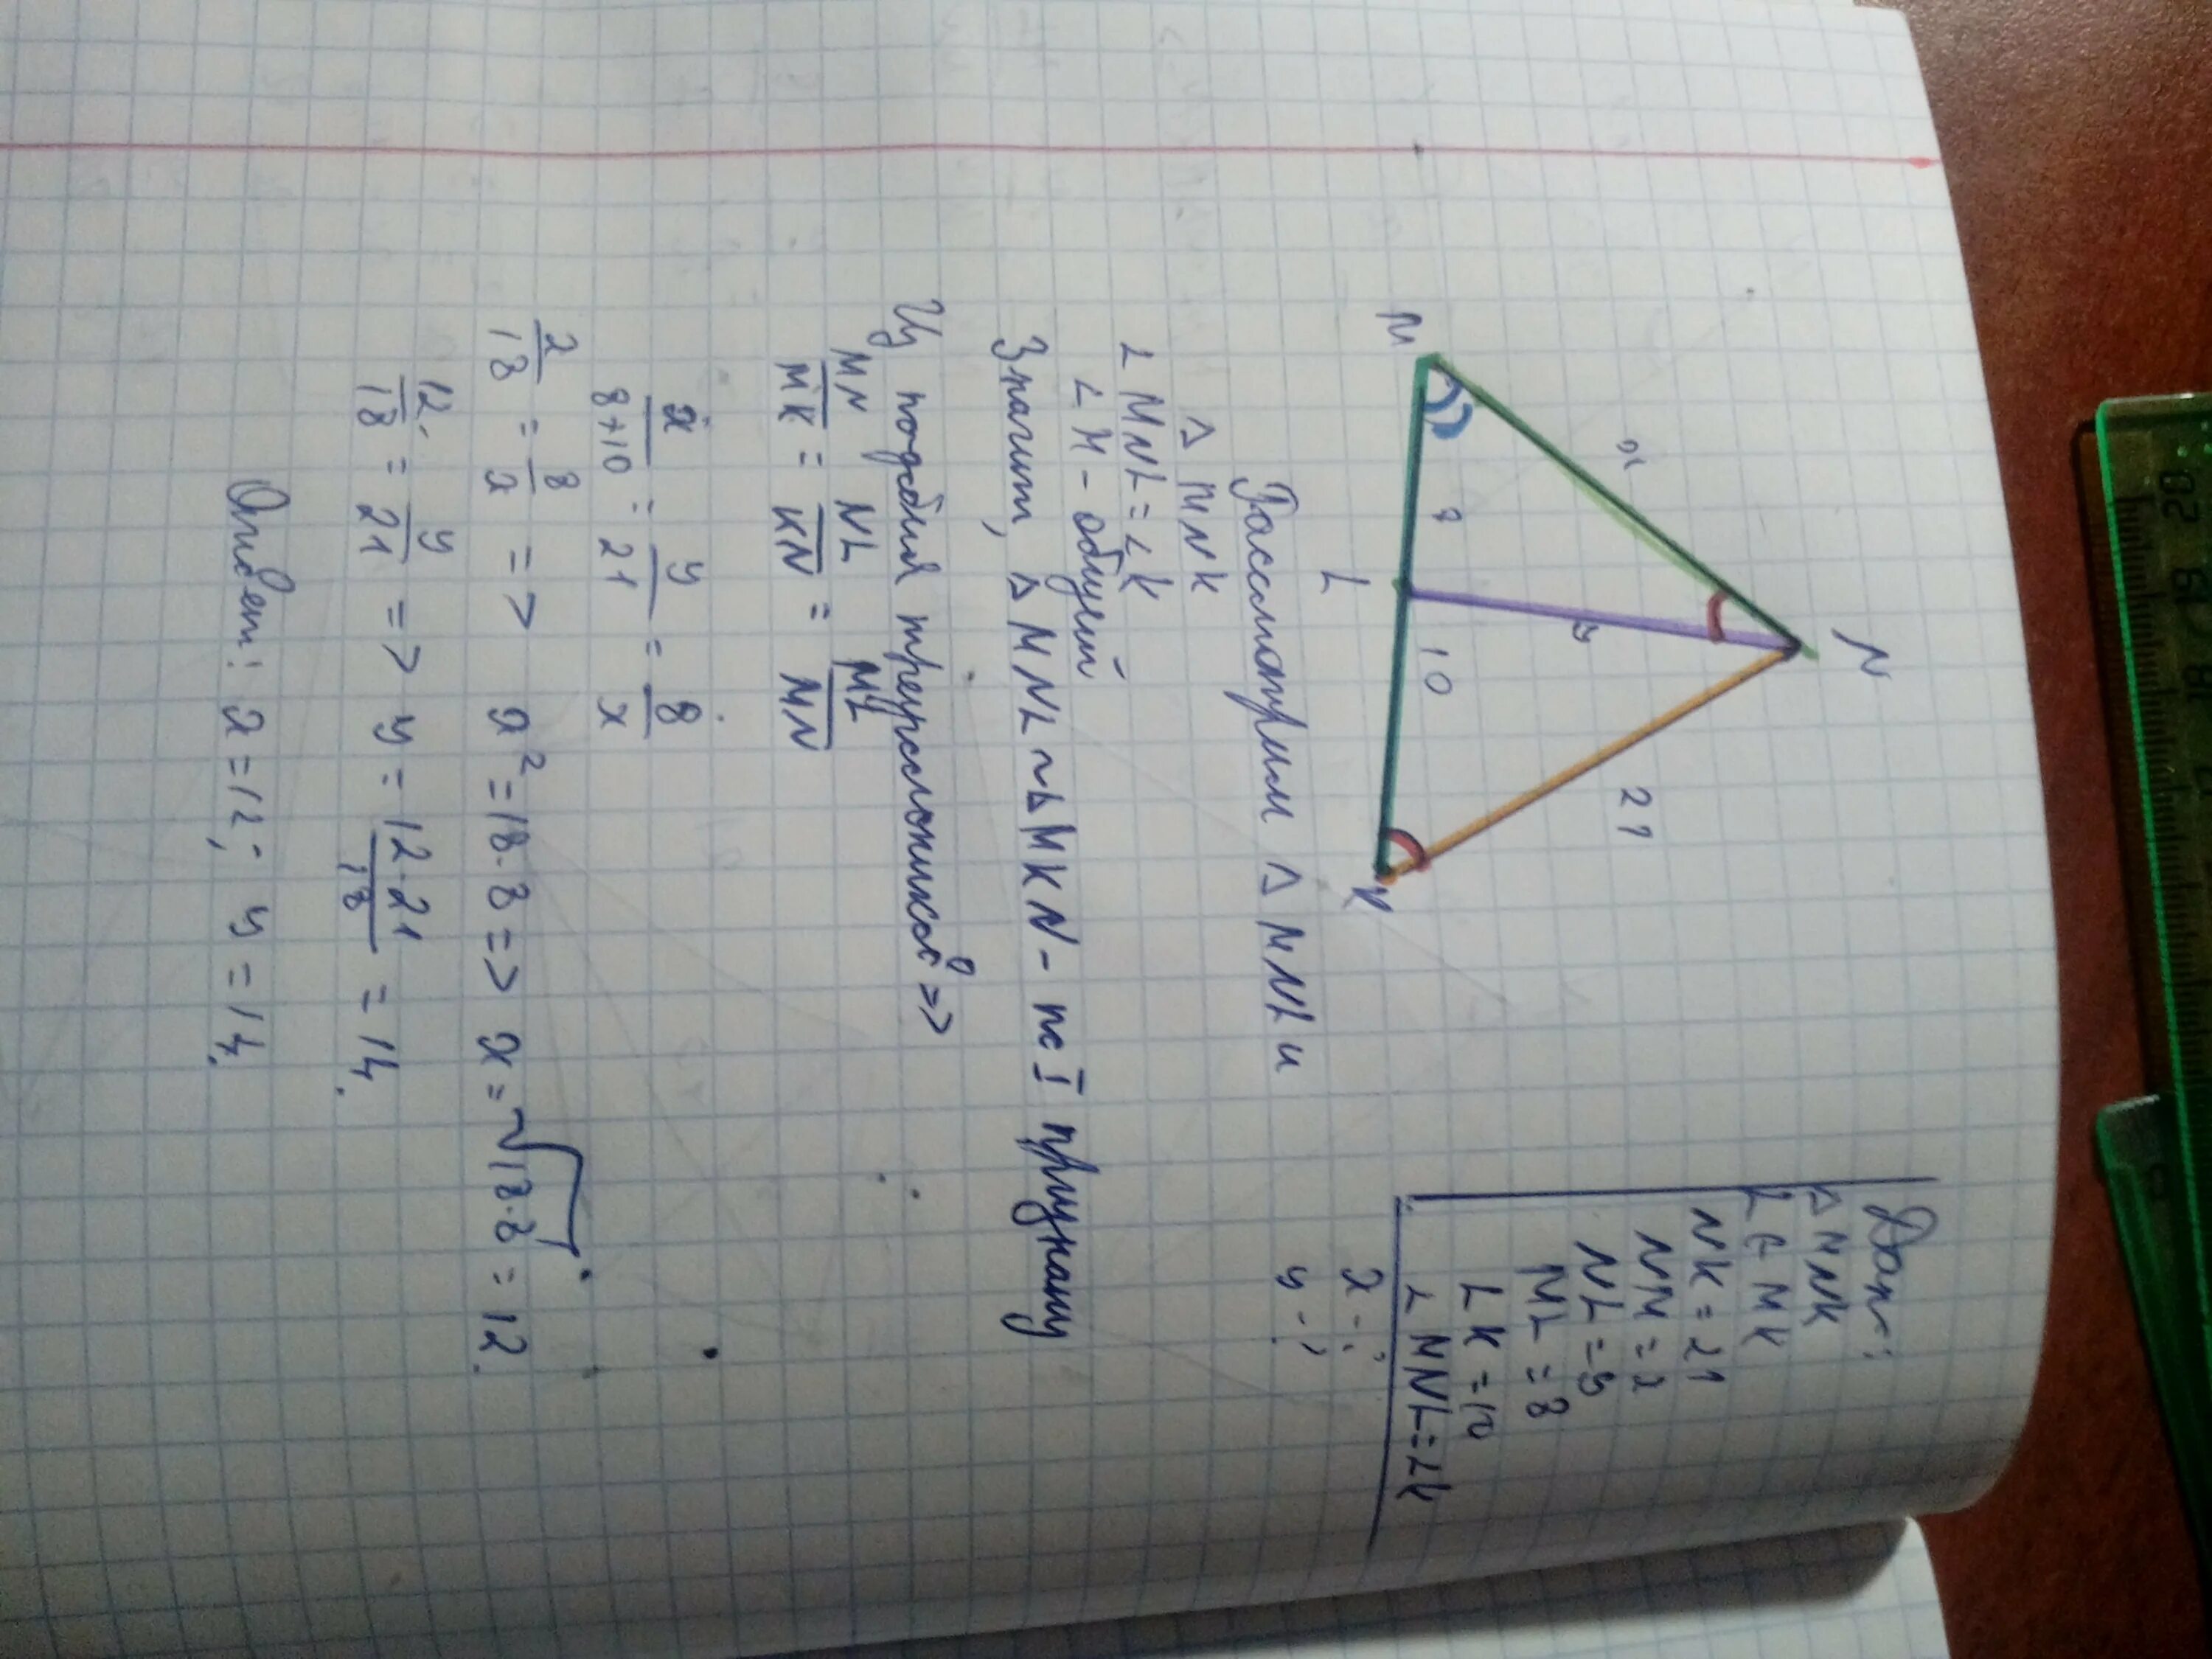 N
x
y
21
8
10
M
L
K
Дано:
△ MNK
L ∈ MK
NK = 21
NM = x
NL = y
ML = 8
LK = 10
∠ MNL = ∠K
x - ?
y - ?
Рассмотрим △ MNL и
△ MNK
∠ MNL = ∠K
∠ M - общий
Значит, △ MNL ~ △ MKN - по I признаку
Из подобия треугольников =>
MN/MK = NL/KN = ML/MN
x/8+10 = y/21 = 8/x
x/18 = 8/x => x² = 18·8 => x = √18·8 = 12.
12/18 = y/21 => y = 12·21/18 = 14.
Ответ: x = 12; y = 14.
20 19 18